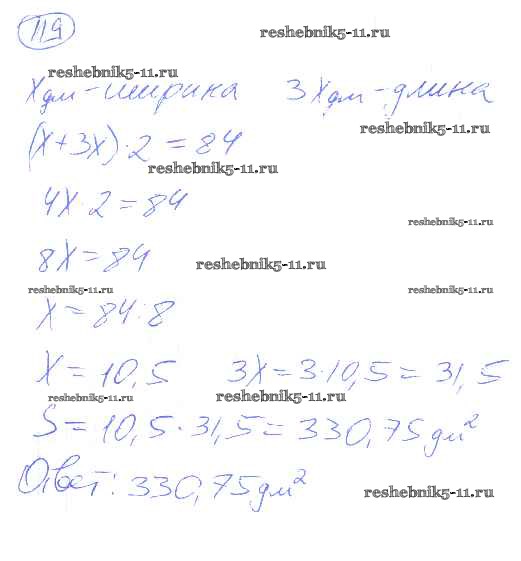 119
reshebnik5-11.ru
reshebnik5-11.ru
Xдм-ширина 3Xдм-длина
reshebnik5-11.ru
(X+3X)·2=84
reshebnik5-11.ru
4X·2=84
reshebnik5-11.ru
8X=84
reshebnik5-11.ru
reshebnik5-11.ru reshebnik5-11.ru
X=84:8
X=10,5 3X=3·10,5=31,5
reshebnik5-11.ru reshebnik5-11.ru
S=10,5·31,5=330,75дм²
Ответ: 330,75дм²
reshebnik5-11.ru